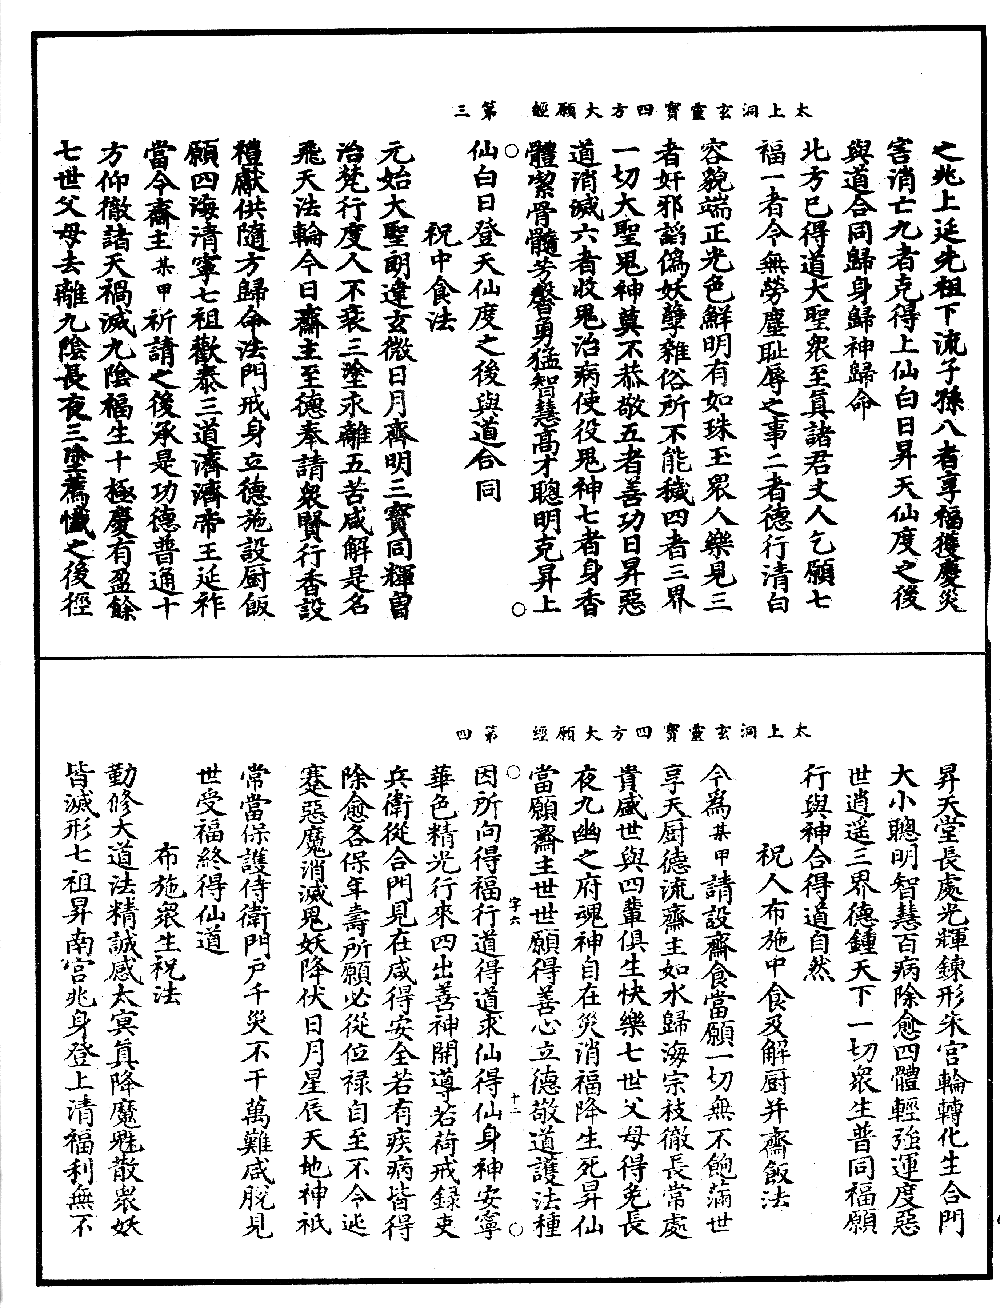 太上洞玄靈寶四方大願經　第三
之兆上延先祖下流子孫八者享福獲慶災
害消亡九者克得上仙白日昇天仙度之後
與道合同歸身歸神歸命
北方已得道大聖衆至真諸君丈人乞願七
福一者今無勞塵耻辱之事二者德行清白
容貌端正光色鮮明有如珠玉衆人樂見三
者奸邪諂僞妖孽雜俗所不能穢四者三界
一切大聖鬼神莫不恭敬五者善功日昇惡
道消滅六者收鬼治病使役鬼神七者身香
體潔骨髓芳馨勇猛智慧高才聰明克昇上
仙白日登天仙度之後與道合同
祝中食法
元始大聖朗達玄微日月齊明三寶同輝曾
治梵行度人不衰三塗永離五苦咸解是名
飛天法輪今日齋主至德奉請衆賢行香設
禮獻供隨方歸命法門戒身立德施設厨飯
願四海清寧七祖歡泰三道濟濟帝王延祚
當今齋主某甲祈請之後承是功德普通十
方仰徹諸天禍滅九陰福生十極慶有盈餘
七世父母去離九陰長夜三塗薦懺之後徑
太上洞玄靈寶四方大願經　第四
昇天堂長處光輝鍊形朱宮輪轉化生合門
大小聰明智慧百病除愈四體輕強運度惡
世逍遥三界德鍾天下一切衆生普同福願
行與神合得道自然
祝人布施中食及解厨并齋飯法
今爲某甲請設齋食當願一切無不飽滿世
享天厨德流齋主如水歸海宗枝徹長常處
貴盛世與四輩俱生快樂七世父母得免長
夜九幽之府魂神自在災消福降生死昇仙
當願齋主世世願得善心立德敬道護法種
字六　十二
因所向得福行道得道求仙得仙身神安寧
華色精光行來四出善神開導若荷戒録吏
兵衛從合門見在咸得安全若有疾病皆得
除愈各保年壽所願必從位禄自至不令迍
蹇惡魔消滅鬼妖降伏日月星辰天地神祇
常當保護侍衛門户千災不干萬難咸脱見
世受福終得仙道
布施衆生祝法
勤修大道法精誠感太冥真降魔魅散衆妖
皆滅形七祖昇南宮兆身登上清福利無不